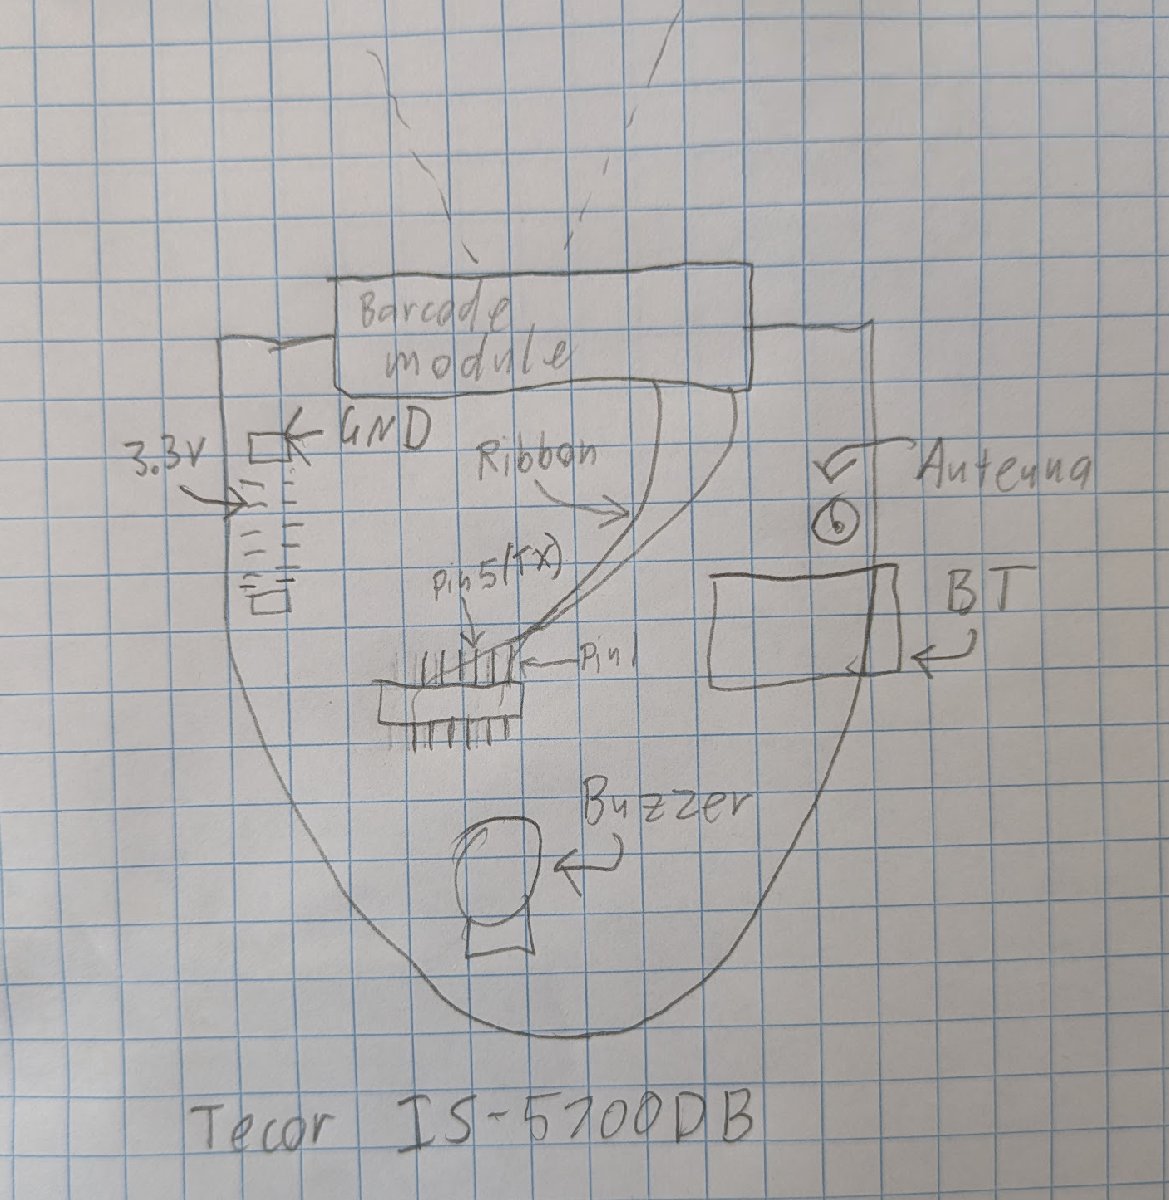 Barcode
module
GND
3.3V
Ribbon
Antenna
Pin 5(TX)
BT
Pin 1
Buzzer
Tecor IS-5700DB